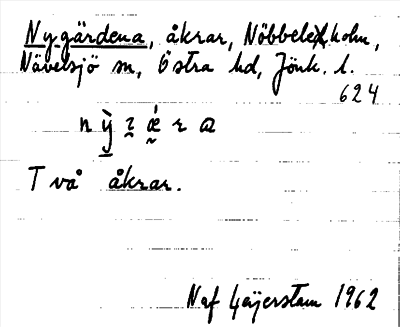 Nygärdena, åkrar, Nöbbeleholm,
Nävelsjö sn, Östra hd, Jönk. l.
624
Två åkrar.
Naf Gaijerstam 1962